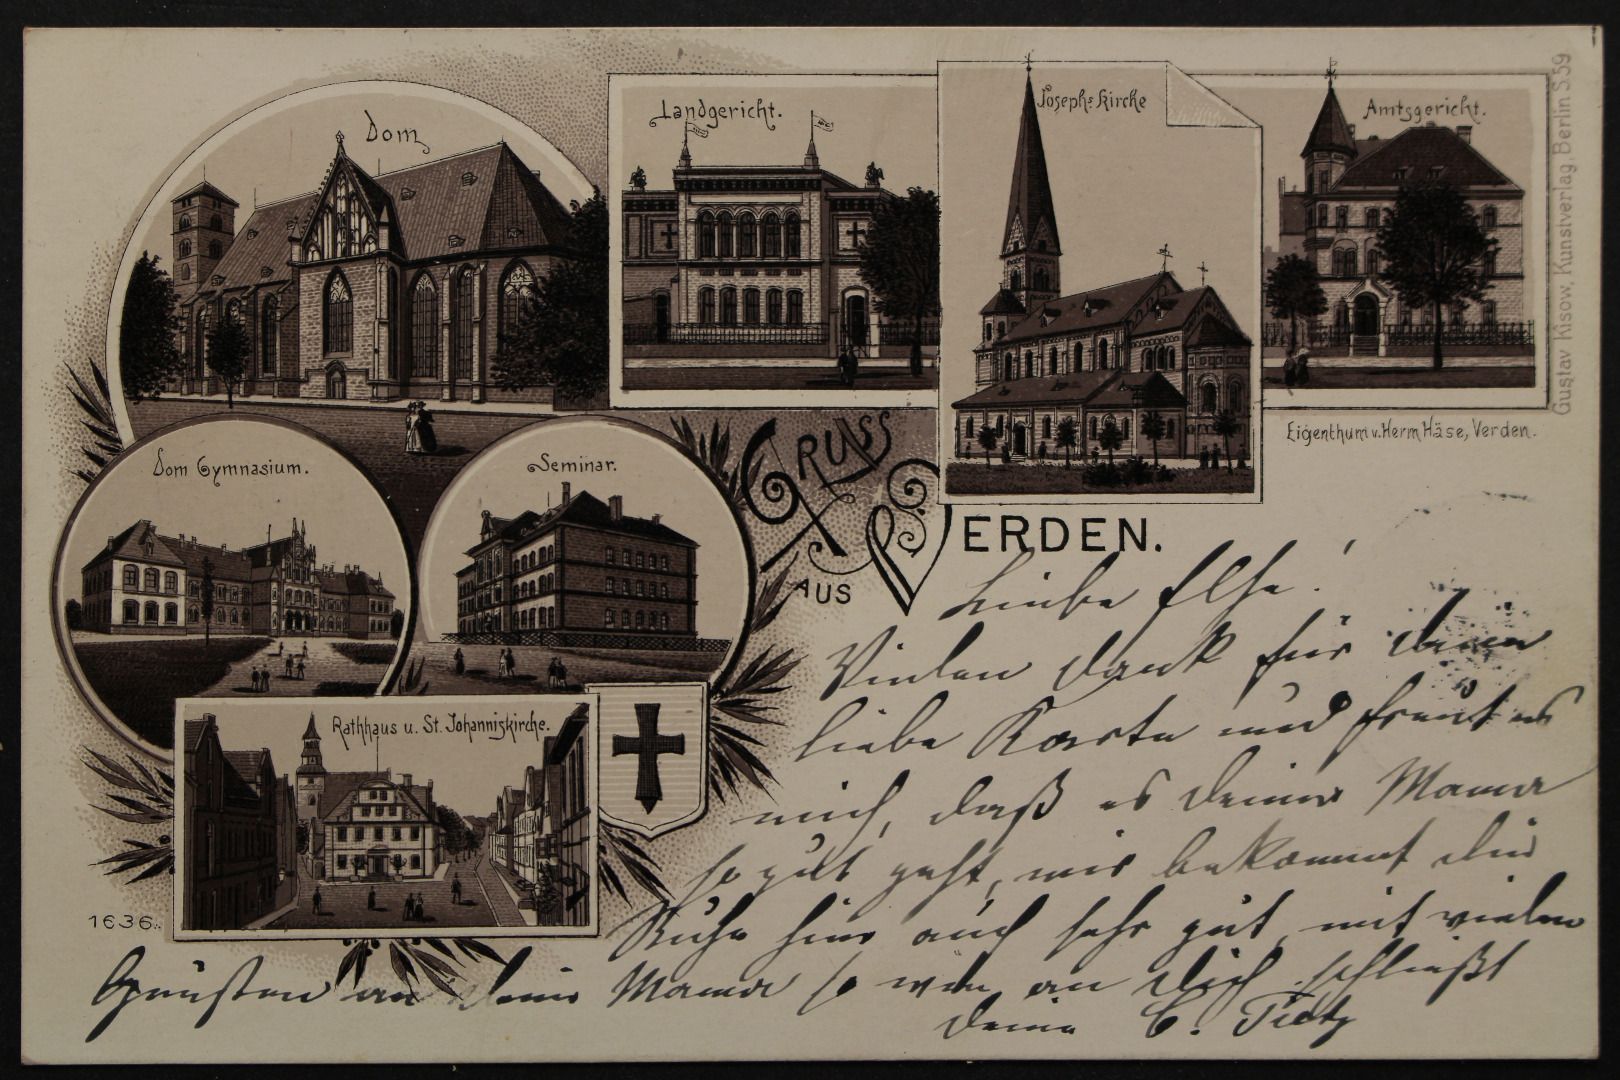 Dom
Landgericht.
Josephs Kirche
Amtsgericht.
Gustav Kisow, Kunstverlag, Berlin S.59
Eigenthum v. Herm Häse, Verden.
Dom Gymnasium.
Seminar.
GRUSS
AUS VERDEN.
Rathhaus u. St. Johanniskirche.
1636.
Liebe Else!
Vielen Dank für deine
liebe Karte und freut es
mich, daß es deiner Mama
so gut geht, mir bekommt die
Ruhe hier auch sehr gut, mit vielen
Grüßen an deine Mama so wie an dich schließt
deine C. Tietz